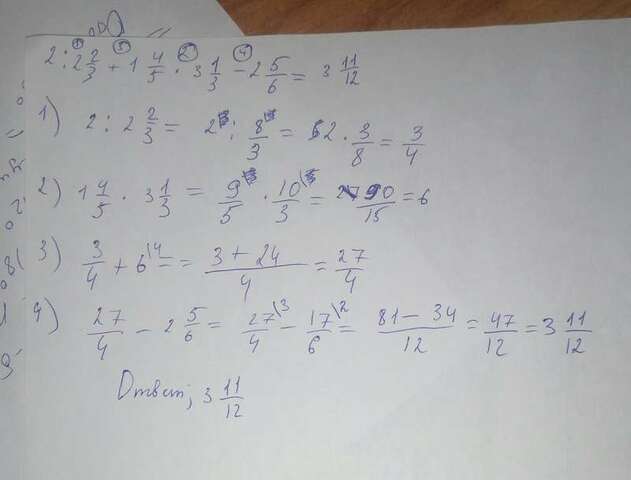 2 : 2 2/3 + 1 4/5 · 3 1/3 − 2 5/6 = 3 11/12
1) 2 : 2 2/3 = 2 : 8/3 = 2 · 3/8 = 3/4
2) 1 4/5 · 3 1/3 = 9/5 · 10/3 = 90/15 = 6
3) 3/4 + 6\4 = (3 + 24)/4 = 27/4
4) 27/4 − 2 5/6 = 27/4\3 − 17/6\2 = (81 − 34)/12 = 47/12 = 3 11/12
Ответ; 3 11/12